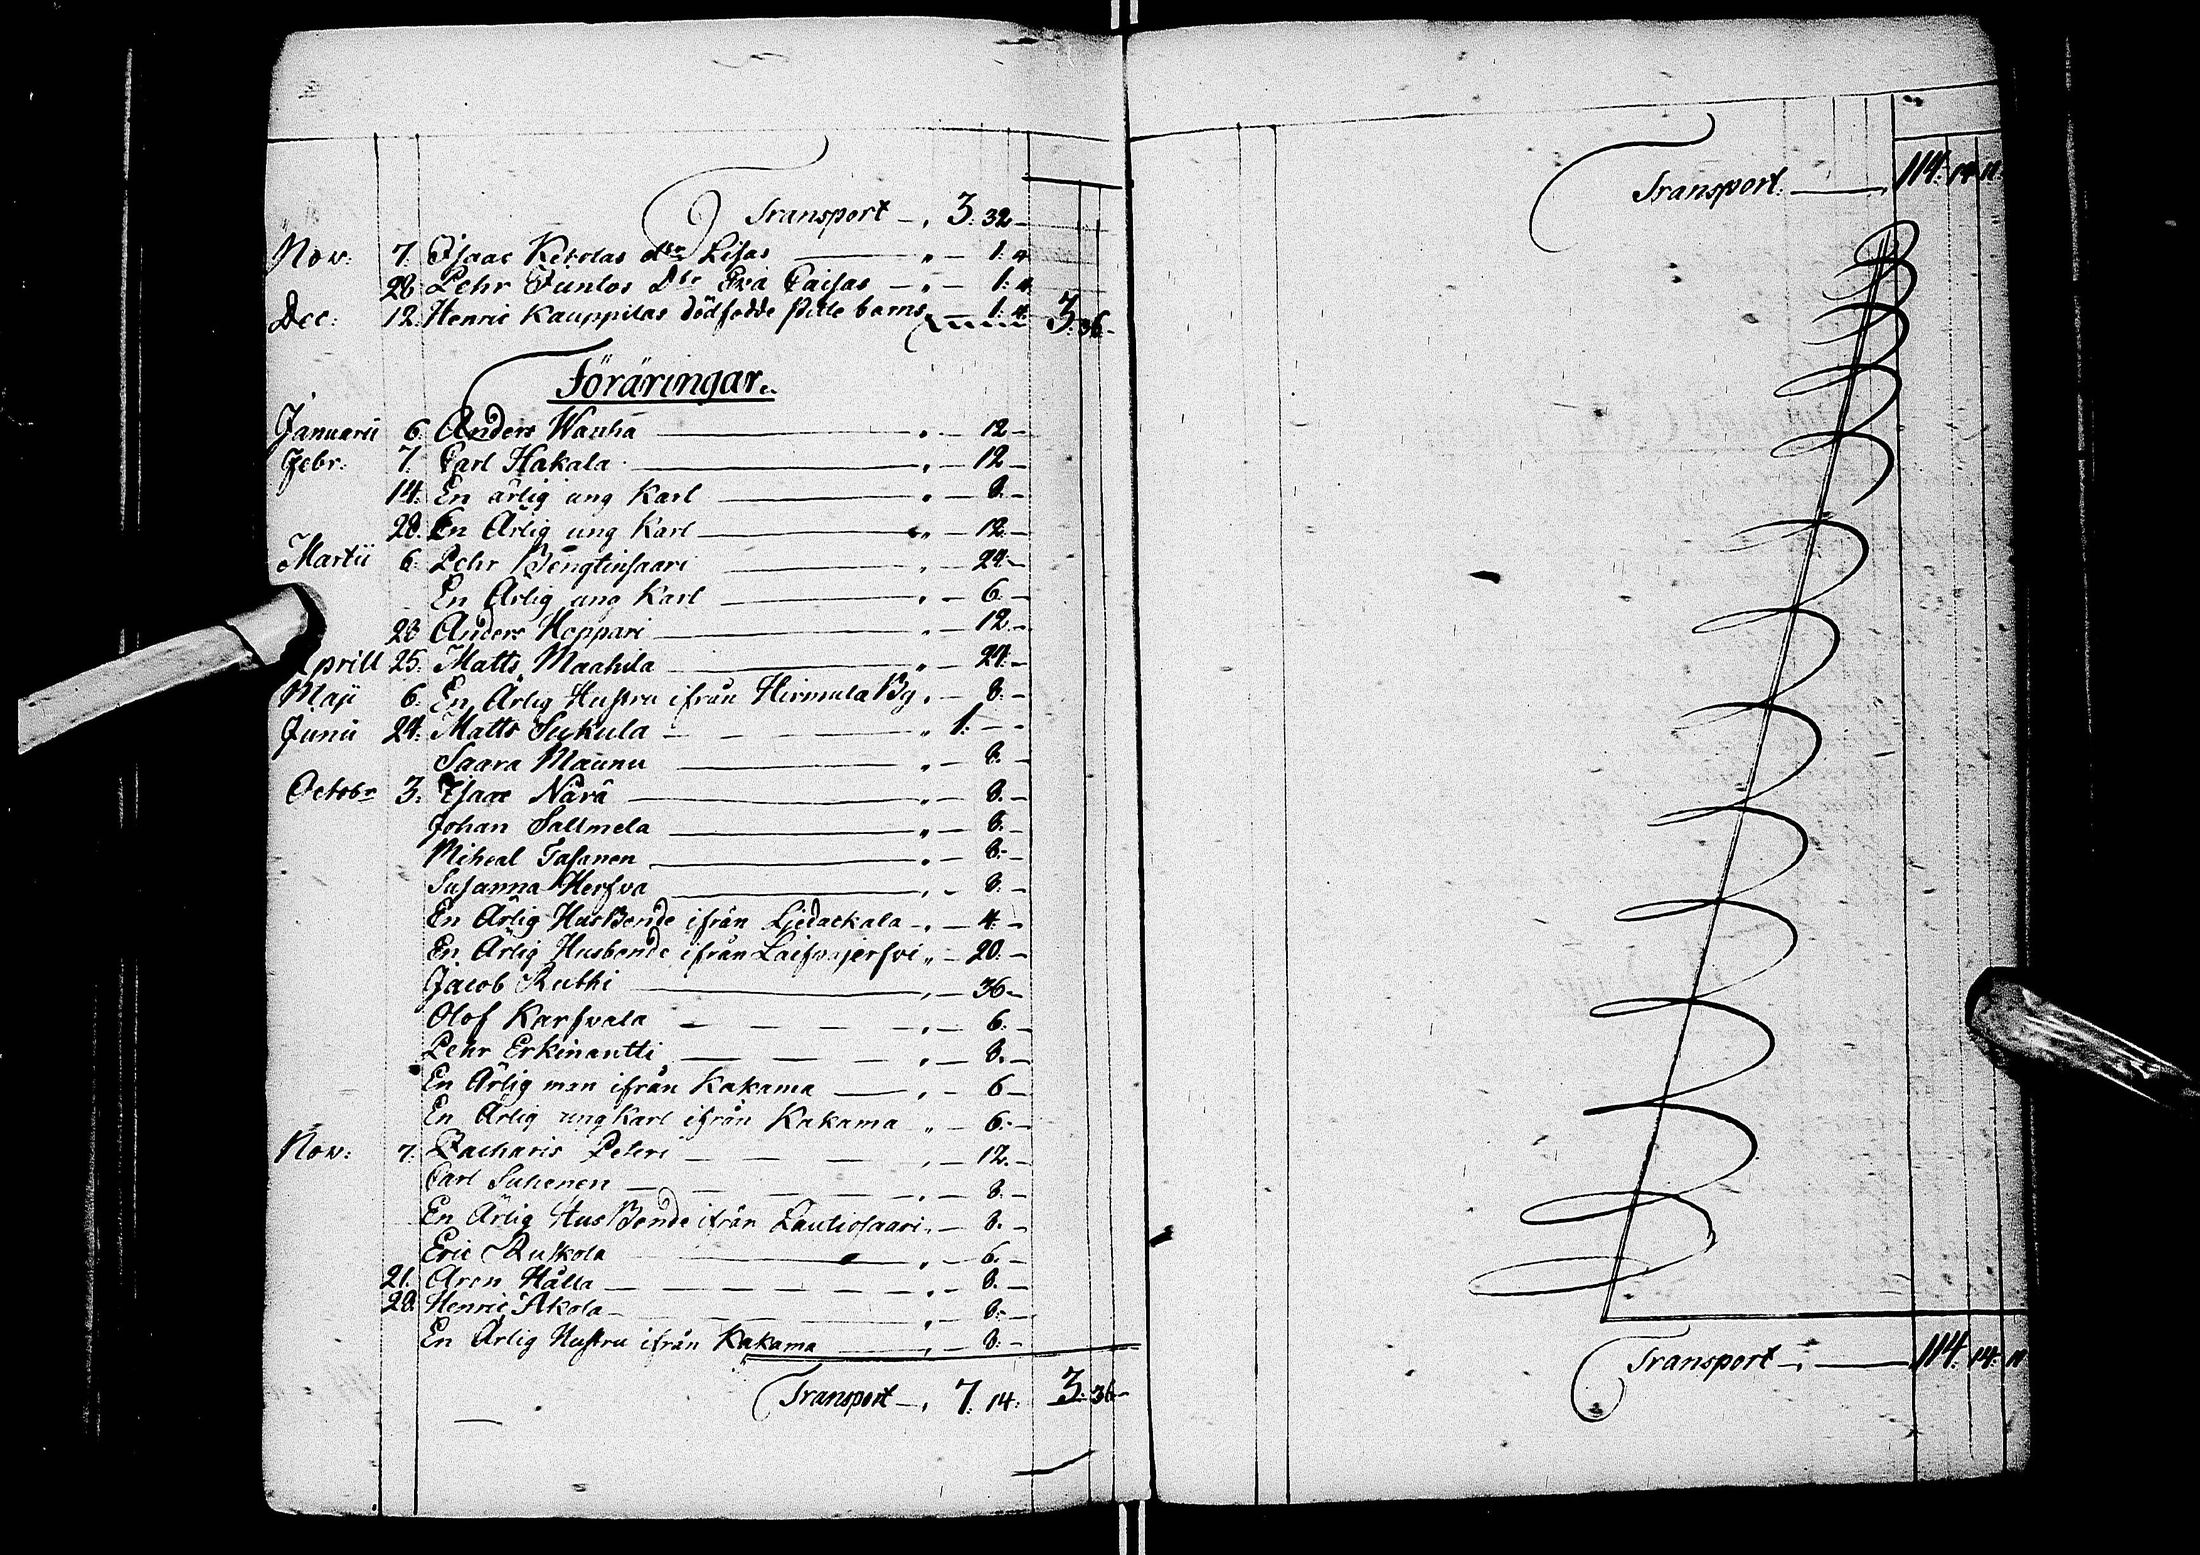 Transport 3. 32
Nov: 7. Isaac Ketolas dtr Lisas 1: 4
28 Pehr Juntos Dtr Eva Caisas 1: 4
Dec: 12. Henric Kauppilas dödfödde barns 1: 4: 3. 36
Föräringar
Januarii 6. Anders Wanha 12
Febr: 7. Carl Hakala 12
14. En ärlig ung Karl 8
28. En Ärlig ung Karl 12
Martii 6. Pehr Bengtinsaari 24
En Ärlig ung Karl 6
28 Anders Hoppari 12
Aprill 25. Matts Maahila 24
Maji 6. En Ärlig Hustru ifrån Hirmula By 8
Junii 24. Matts Sukula 1.
Saara Maunu 8
Octobr 3. Isaac Närä 8
Johan Sallmela 8
Miheal Tasanen 8
Susanna Herfva 8
En Ärlig HusBonde ifrån Liedackala 4
En Ärlig Husbonde ifrån Laifvajerfvi 20
Jacob Ruthi 36
Olof Karfvala 6
Pehr Erkinantti 8
En Ärlig man ifrån Kakama 6
En Ärlig ung Karl ifrån Kakama 6
Nov: 7. Zacharis Peteri 12
Carl Suhonen 8
En Ärlig HusBonde ifrån Lautiosaari 8
Eric Ruskola 6
21. Aron Hälla 8
28. Henric Akola 8
En Ärlig Hustru ifrån Kakama 8
Transport 7. 14. 3. 36
Transport 114. 14. 11
Transport 114. 14. 11